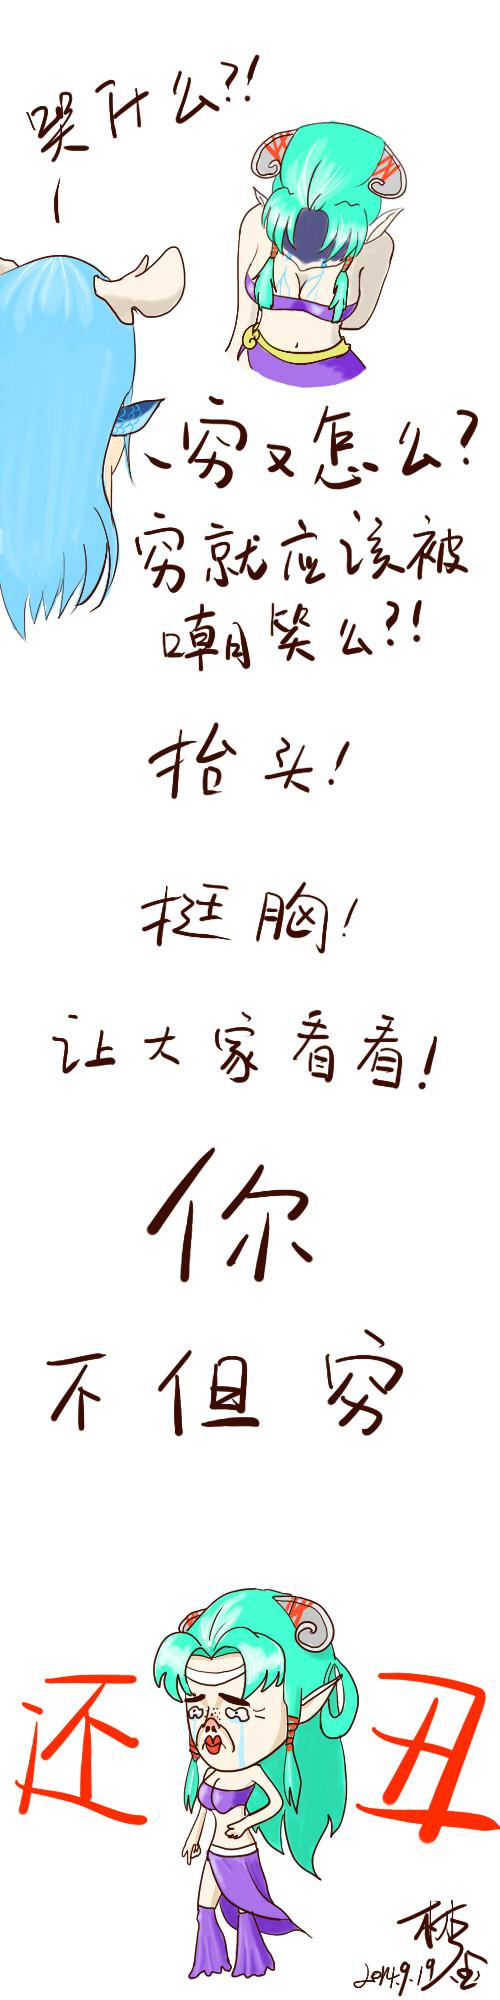 哭什么?!
穷又怎么?
穷就应该被
嘲笑么?!
抬头!
挺胸!
让大家看看!
你
不但穷
还丑
2014.9.19